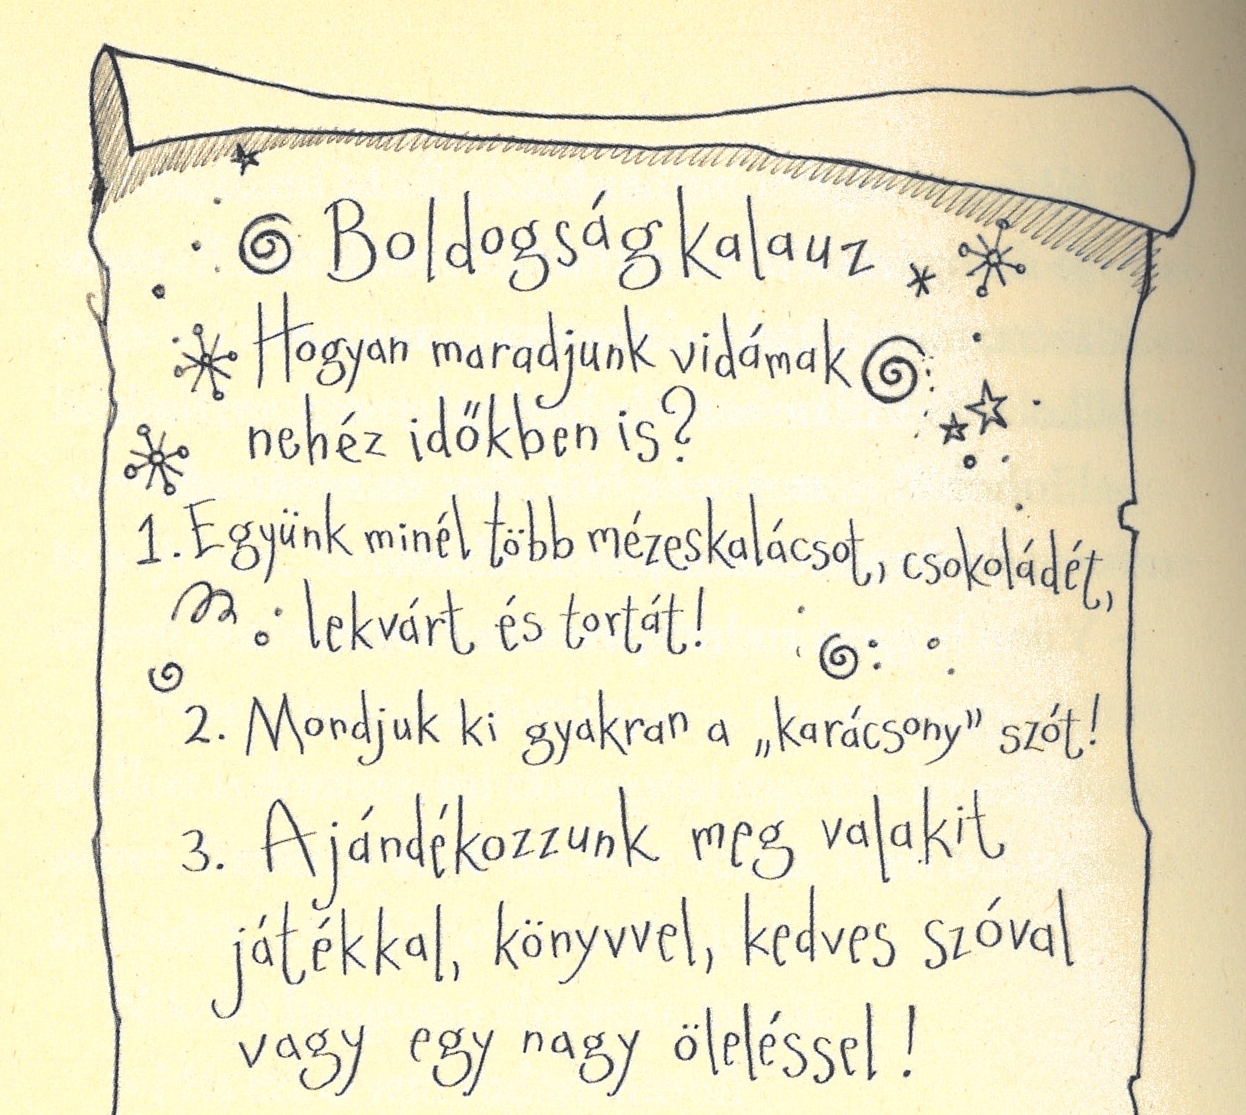 Boldogságkalauz
Hogyan maradjunk vidámak
nehéz időkben is?
1. Együnk minél több mézeskalácsot, csokoládét,
lekvárt és tortát!
2. Mondjuk ki gyakran a „karácsony” szót!
3. Ajándékozzunk meg valakit
játékkal, könyvvel, kedves szóval
vagy egy nagy öleléssel!